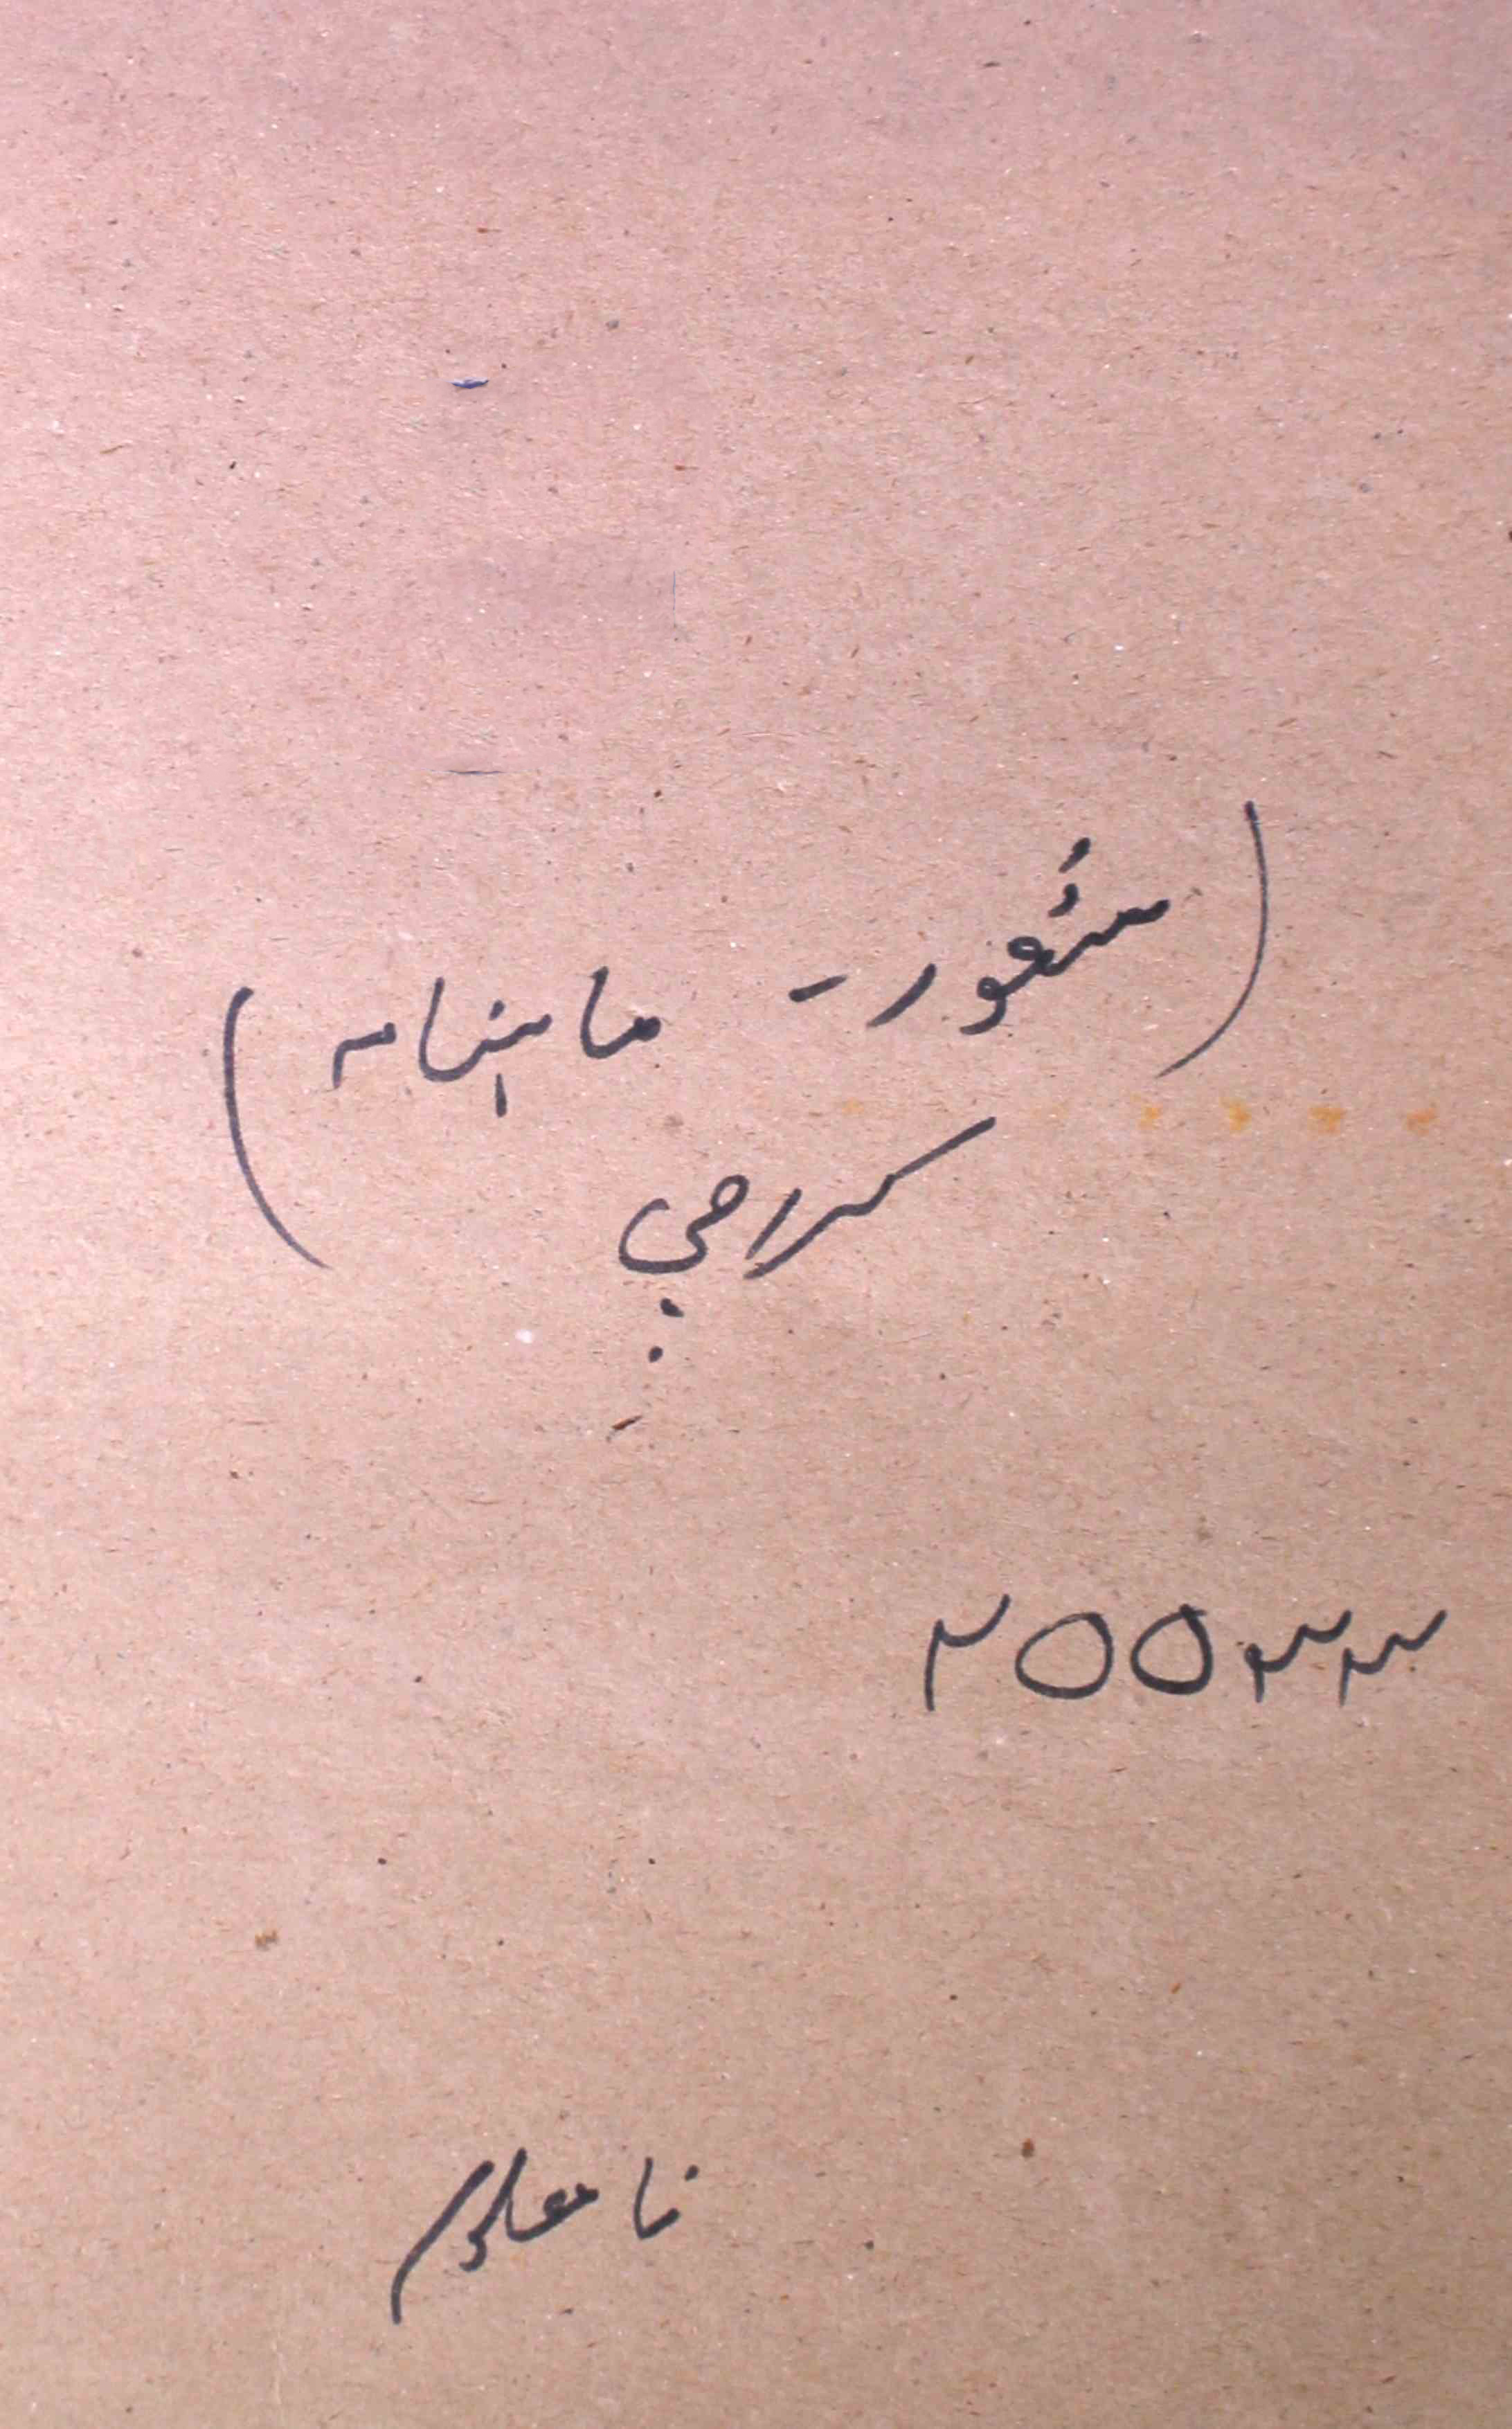 (شعور - ماہنامہ)
کراچی
۲۵۵۳۳
نا معلوم